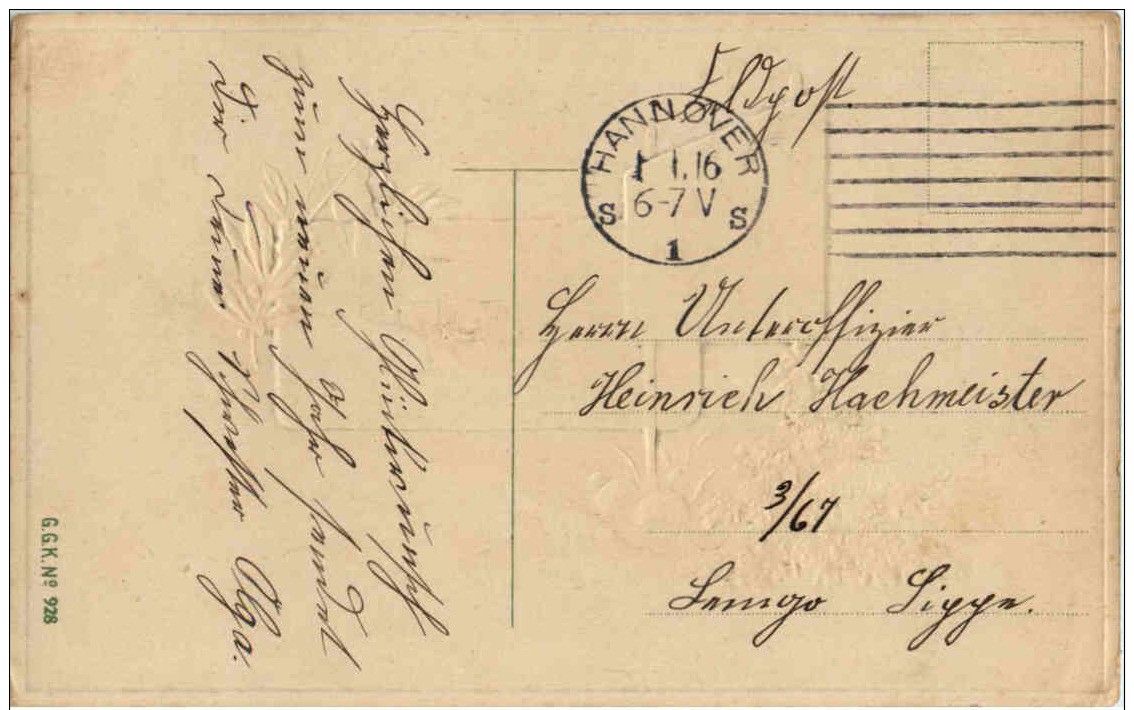 Feldpost
HANNOVER
1 1.16
6-7 V
S S
1
Herrn Unteroffizier
Heinrich Hachmeister
3/67
Lemgo Lippe.
Herzlichen Glückwunsch
zum neuen Jahr sendet
Dir Deine Schwester Olga.
G.G.K. Nº 928